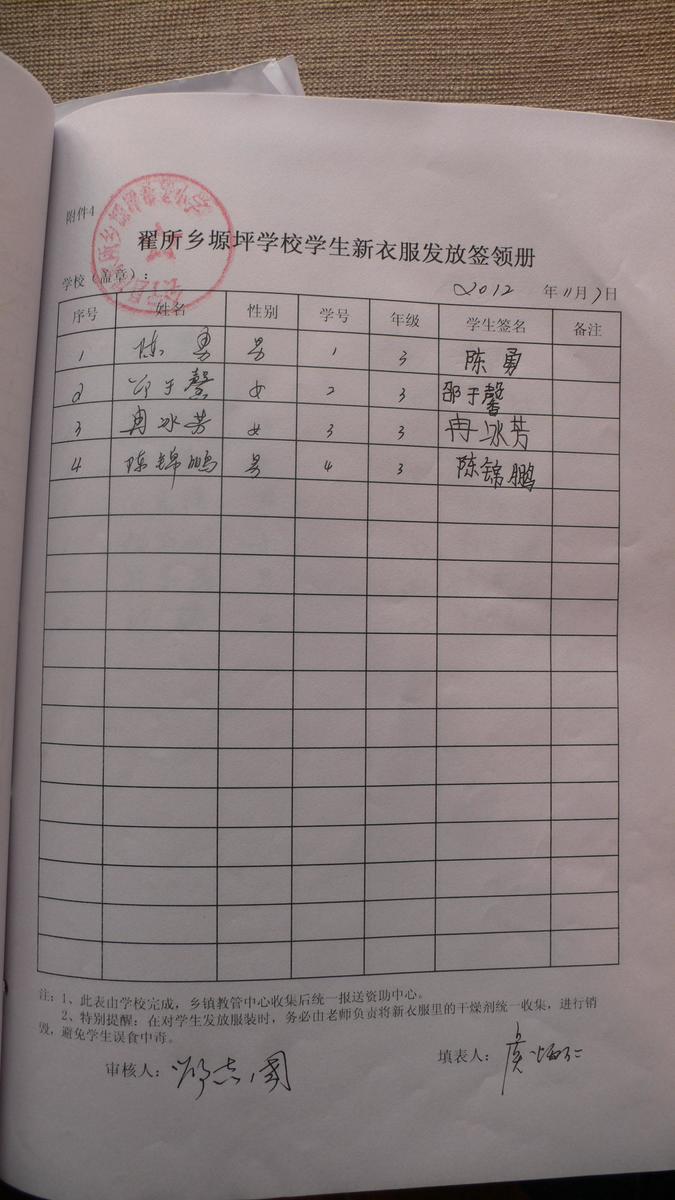 附件4
翟所乡塬坪学校学生新衣服发放签领册
学校（盖章）： 2012 年 11月7日
序号 姓名 性别 学号 年级 学生签名 备注
1 陈勇 男 1 3 陈勇
2 邵于馨 女 2 3 邵于馨
3 冉冰芳 女 3 3 冉冰芳
4 陈锦鹏 男 4 3 陈锦鹏
注：1、此表由学校完成，乡镇教管中心收集后统一报送资助中心。
2、特别提醒：在对学生发放服装时，务必由老师负责将新衣服里的干燥剂统一收集，进行销
毁，避免学生误食中毒。
审核人： 填表人：